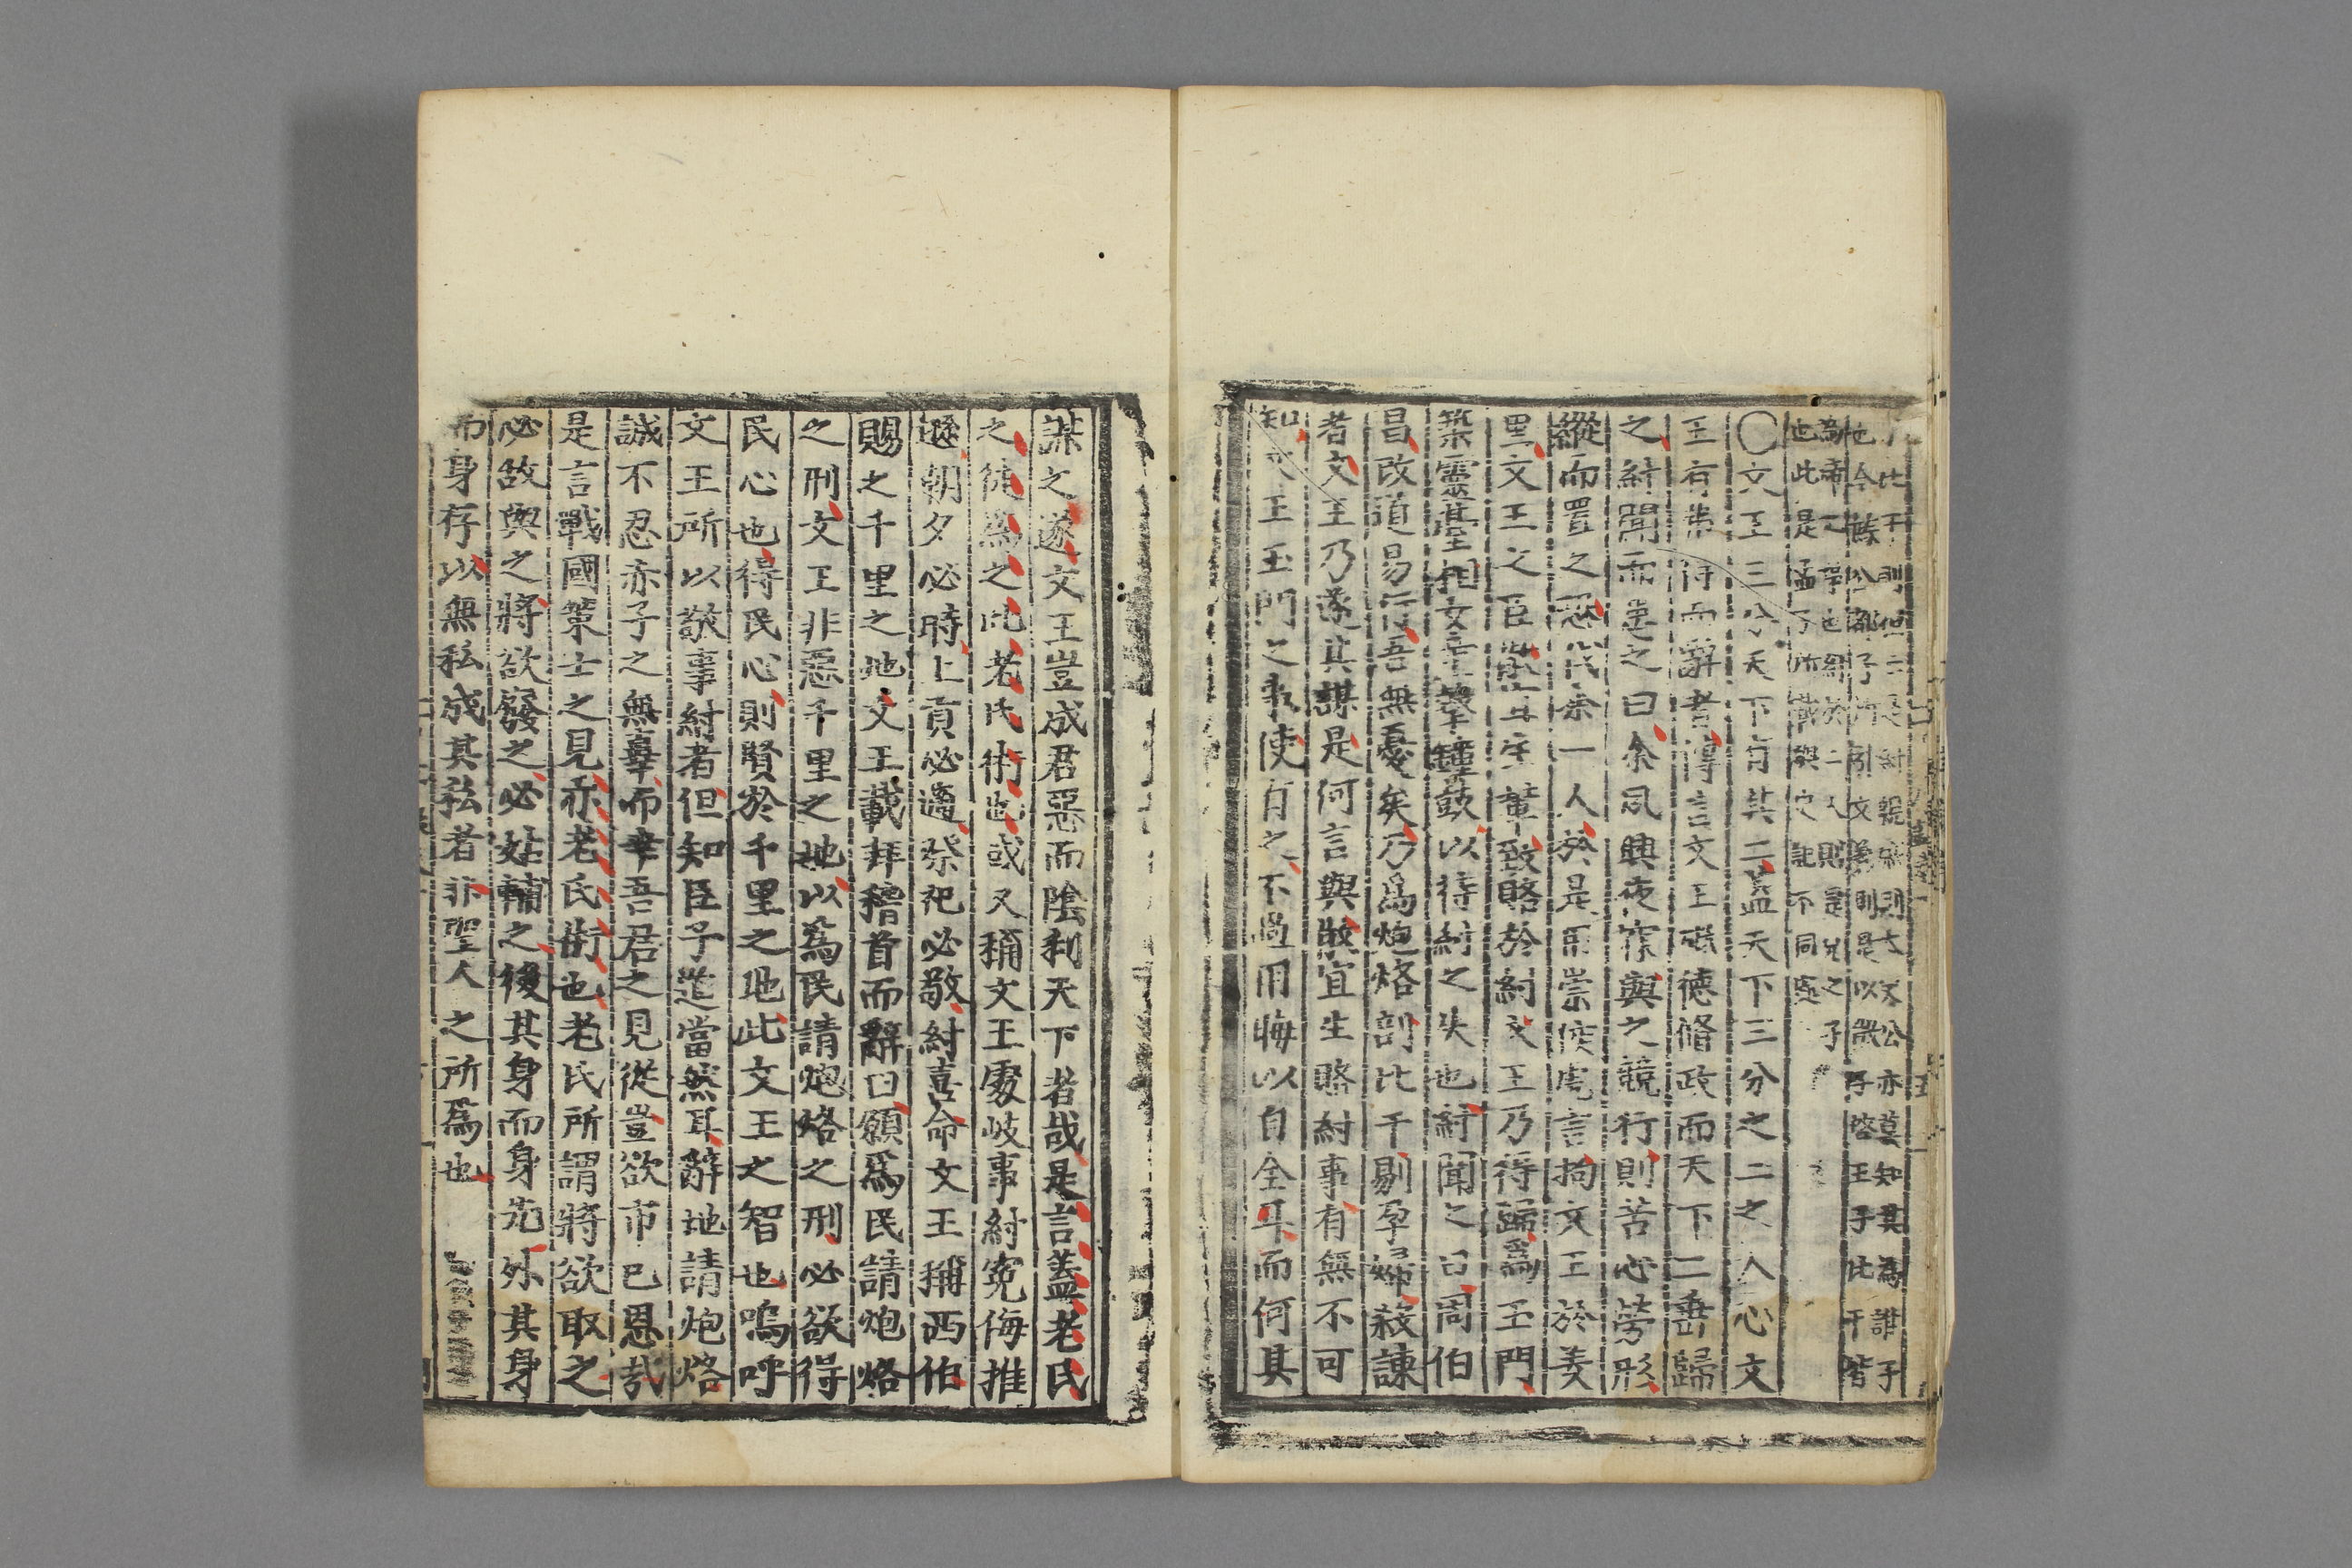 比干則但云是紂親戚則太史公亦莫知其爲誰子
也今蘇公鄒子所引文爲則是以微子啓王子比干皆
爲帝乙子也紂於二人則是兄之子
也此是孟子所載與史記不同處
〇文王三分天下有其二蓋天下三分之二之人心文
王有弗待而辭者傳言文王砥德脩政而天下二垂歸
之紂聞而患之曰余夙興夜寐與之競行則苦心勞形
縱而置之恐伐余一人於是崇侯虎言拘文王於羑
里文王之臣散宜生輩致賂於紂文王乃得歸爲玉門
築靈臺相女童擊鐘鼓以待紂之失也紂聞之曰周伯
昌改道易行吾無憂矣乃爲炮烙剖比干剔孕婦殺諫
者文王乃遂其謀是何言與散宜生賂紂事有無不可
知文王玉門之事使有之不過用晦以自全耳而何其
謀之遂文王豈成君惡而陰利天下者哉是言蓋老氏
之徒爲之此老氏術也或又稱文王處岐事紂寃侮推
遜朝夕必時上貢必適祭祀必敬紂喜命文王稱西伯
賜之千里之地文王載拜稽首而辭曰願爲民請炮烙
之刑文王非惡千里之地以爲民請炮烙之刑必欲得
民心也得民心則賢於千里之地此文王之智也嗚呼
文王所以敬事紂者但知臣子道當然耳辭地請炮烙
誠不忍赤子之無辜而幸吾君之見從豈欲市已恩哉
是言戰國策士之見亦老氏術也老氏所謂將欲取之
必故與之將欲廢之必姑輔之後其身而身先外其身
而身存以無私成其私者非聖人之所爲也